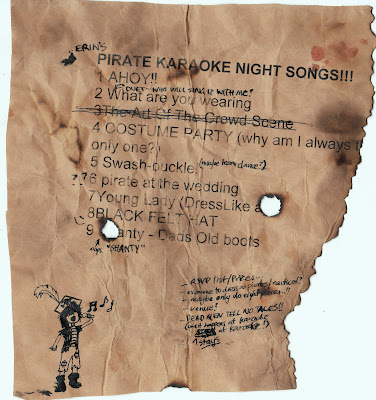 ERIN'S
PIRATE KARAOKE NIGHT SONGS!!!
1 AHOY!!
DUET - WHO WILL SING IT WITH ME?
2 What are you wearing
3 The Art Of The Crowd Scene
4 COSTUME PARTY (why am I always t
only one?)
5 Swash-buckle (maybe learn dance?)
??6 pirate at the wedding
7 Young Lady (DressLike a
8 BLACK FELT HAT
9 anty - Dads Old boots
"SHANTY"
- RSVP LIST/
- everyone to dress as pirates/nautical?
- maybe only do night
- venue?
- DEAD MEN TELL NO TALES!!
(what happens at karaoke
at karaoke!)
stays